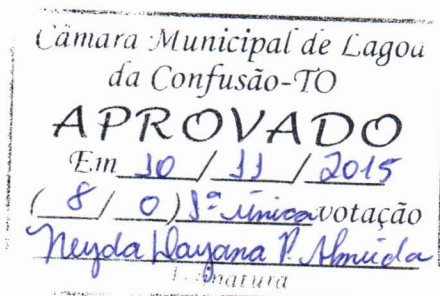 Câmara Municipal de Lagoa
da Confusão-TO
APROVADO
Em 10 / 11 / 2015
( 8 / 0 ) 1ª única votação
Neyda Dayana P. Almeida
Assinatura